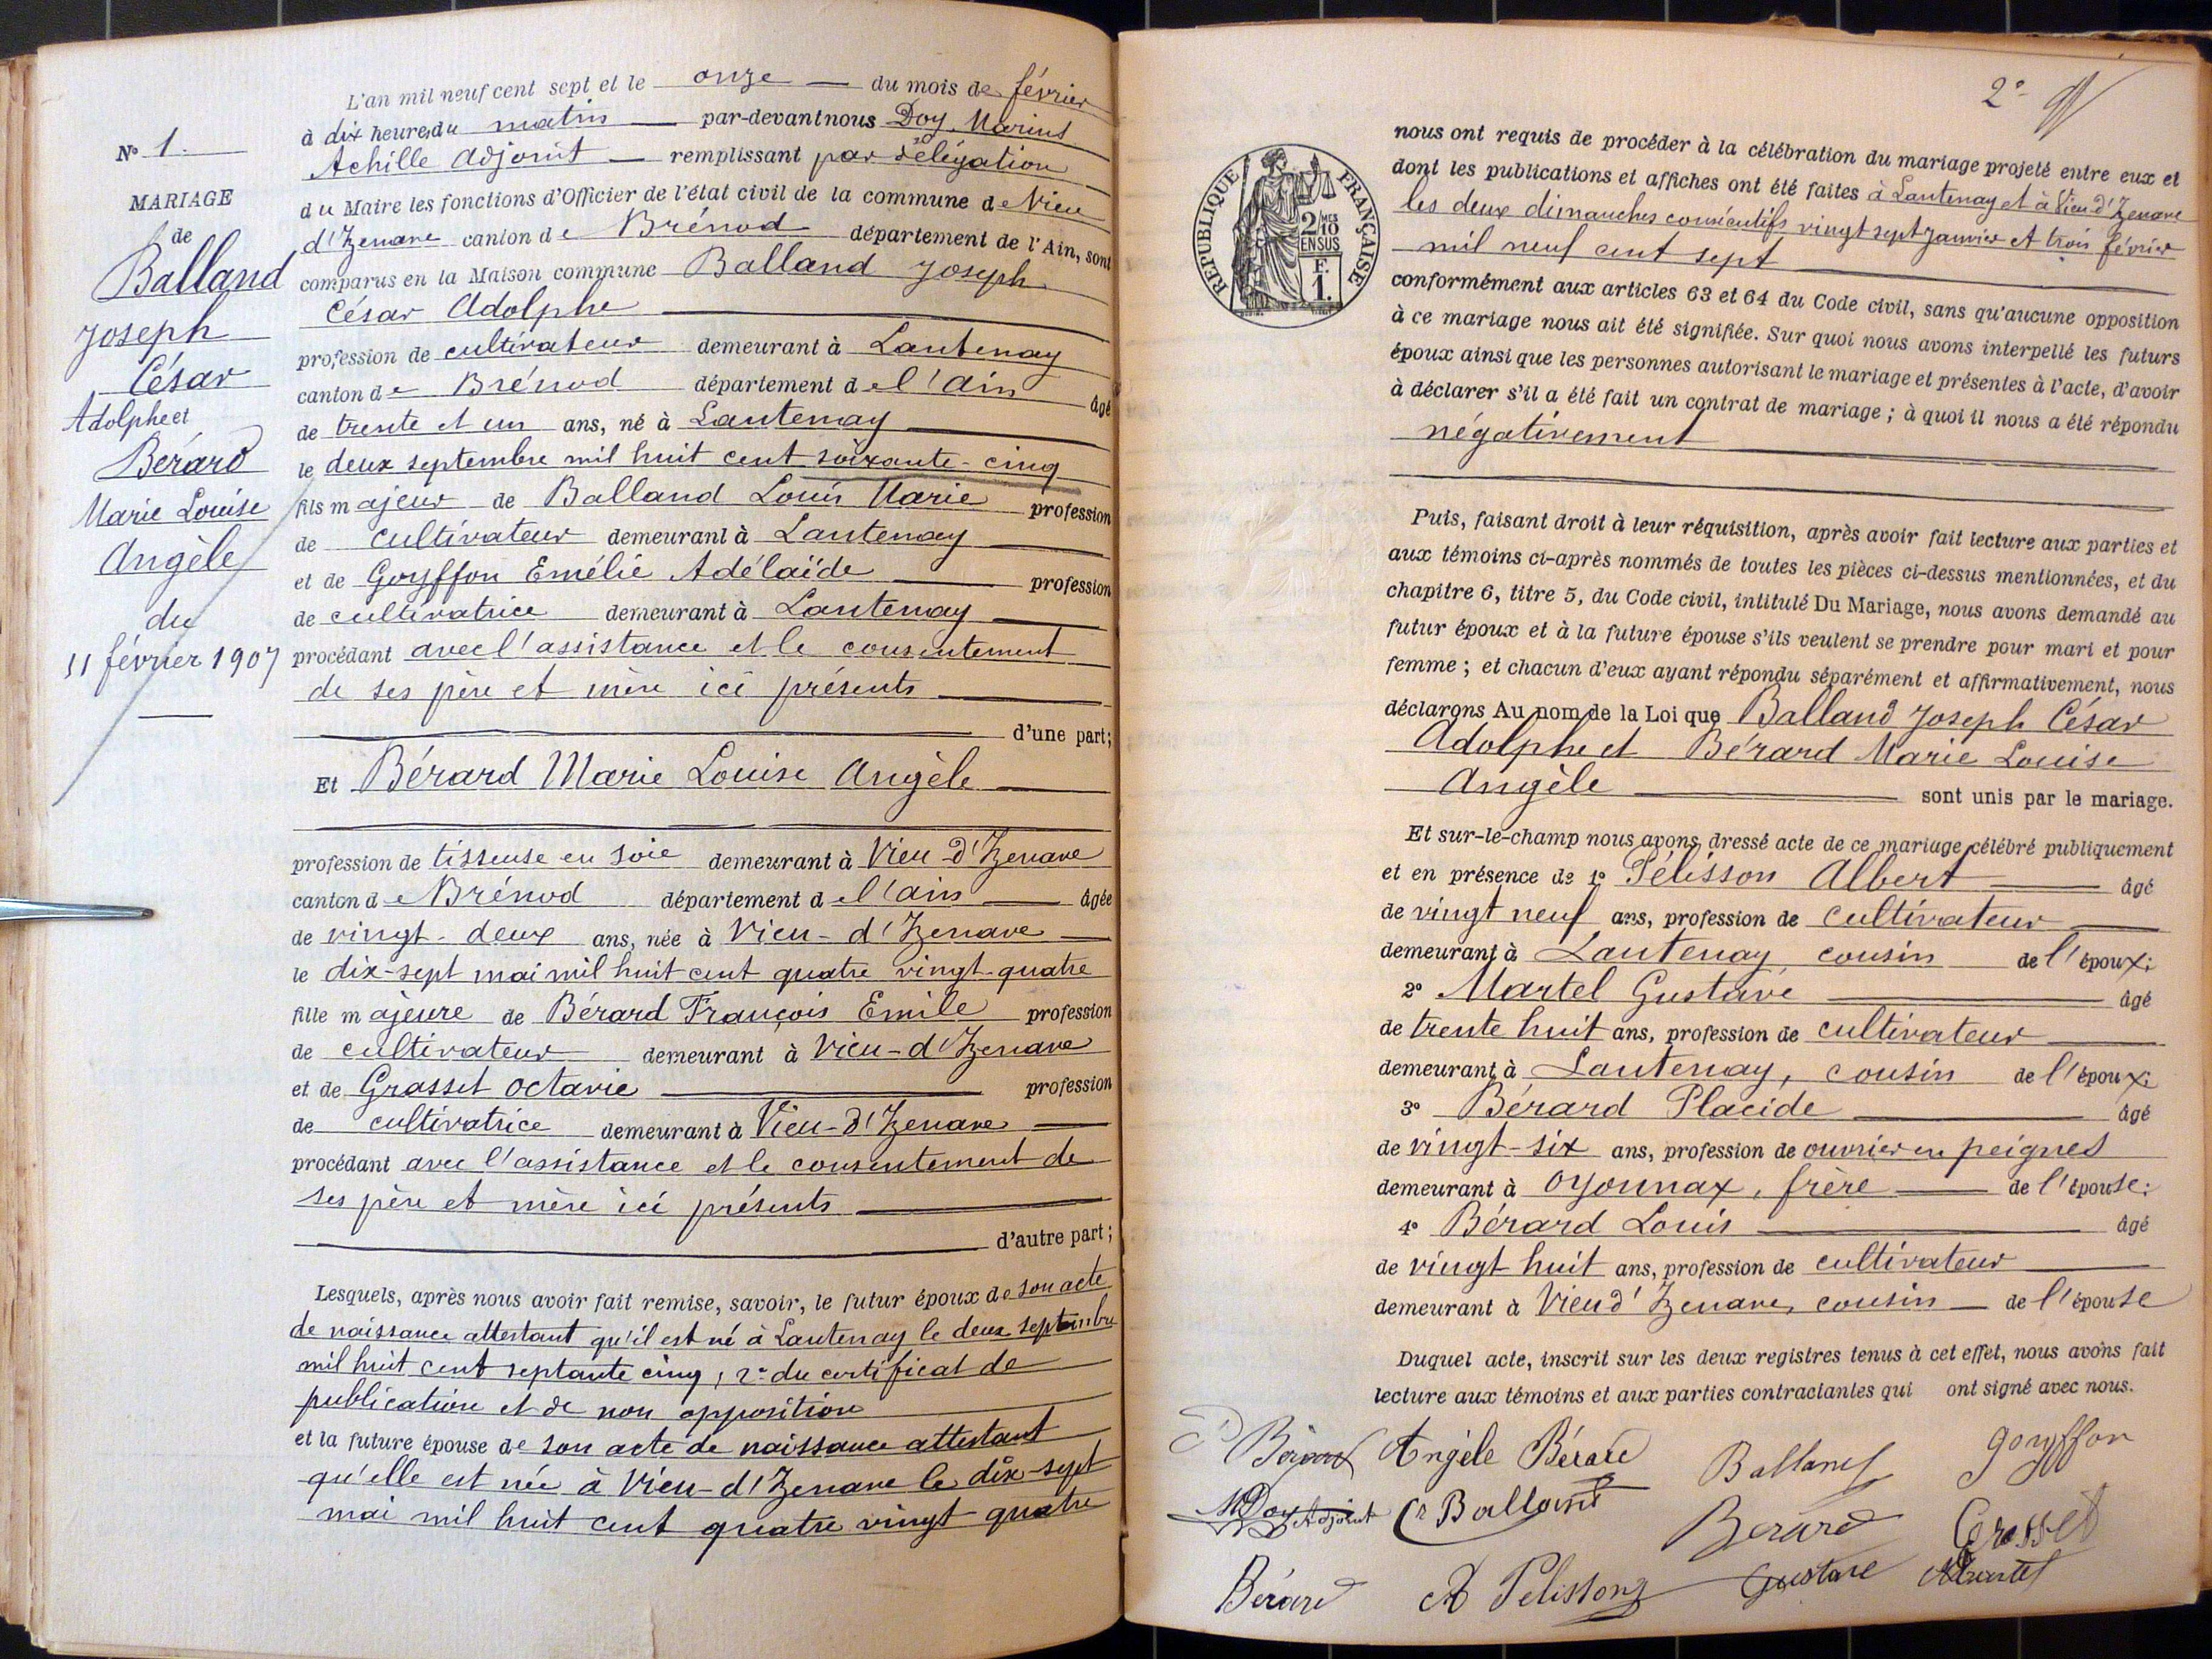 L'an mil neuf cent sept et le onze du mois de février
à dix heures du matin par-devant nous Doy Marius
Achille Adjoint remplissant par délégation
du Maire les fonctions d'Officier de l'état civil de la commune de Vieu
d'Izenave canton de Brénod département de l'Ain, sont
comparus en la Maison commune Balland Joseph
César Adolphe
profession de cultivateur demeurant à Lantenay
canton de Brénod département de l'Ain âgé
de trente et un ans, né à Lantenay
le deux septembre mil huit cent soixante-cinq
fils majeur de Balland Louis Marie profession
de cultivateur demeurant à Lantenay
et de Goyffon Emélie Adélaïde profession
de cultivatrice demeurant à Lantenay
procédant avec l'assistance et le consentement
de ses père et mère ici présents
d'une part;
Et Bérard Marie Louise Angèle
profession de tisseuse en soie demeurant à Vieu-d'Izenave
canton de Brénod département de l'Ain âgée
de vingt-deux ans, née à Vieu-d'Izenave
le dix-sept mai mil huit cent quatre vingt-quatre
fille majeure de Bérard François Emile profession
de cultivateur demeurant à Vieu-d'Izenave
et de Grasset Octavie profession
de cultivatrice demeurant à Vieu-d'Izenave
procédant avec l'assistance et le consentement de
ses père et mère ici présents
d'autre part;
Lesquels, après nous avoir fait remise, savoir, le futur époux de son acte
de naissance attestant qu'il est né à Lantenay le deux septembre
mil huit cent septante cinq, 2° du certificat de
publication et de non opposition
et la future épouse de son acte de naissance attestant
qu'elle est née à Vieu-d'Izenave le dix-sept
mai mil huit cent quatre vingt quatre
N° 1.
MARIAGE
de
Balland
Joseph
César
Adolphe et
Bérard
Marie Louise
Angèle
du
11 février 1907
2°
REPUBLIQUE FRANÇAISE
2 MES
10
EN SUS
F.
1.
nous ont requis de procéder à la célébration du mariage projeté entre eux et
dont les publications et affiches ont été faites à Lantenay et à Vieu d'Izenave
les deux dimanches consécutifs vingt sept janvier et trois février
mil neuf cent sept
conformément aux articles 63 et 64 du Code civil, sans qu'aucune opposition
à ce mariage nous ait été signifiée. Sur quoi nous avons interpellé les futurs
époux ainsi que les personnes autorisant le mariage et présentes à l'acte, d'avoir
à déclarer s'il a été fait un contrat de mariage ; à quoi il nous a été répondu
négativement
Puis, faisant droit à leur réquisition, après avoir fait lecture aux parties et
aux témoins ci-après nommés de toutes les pièces ci-dessus mentionnées, et du
chapitre 6, titre 5, du Code civil, intitulé Du Mariage, nous avons demandé au
futur époux et à la future épouse s'ils veulent se prendre pour mari et pour
femme ; et chacun d'eux ayant répondu séparément et affirmativement, nous
déclarons Au nom de la Loi que Balland Joseph César
Adolphe et Bérard Marie Louise
Angèle sont unis par le mariage.
Et sur-le-champ nous avons dressé acte de ce mariage célébré publiquement
et en présence de 1° Pélisson Albert âgé
de vingt neuf ans, profession de cultivateur
demeurant à Lantenay cousin de l'époux;
2° Martel Gustave âgé
de trente huit ans, profession de cultivateur
demeurant à Lantenay, cousin de l'époux;
3° Bérard Placide âgé
de vingt-six ans, profession de ouvrier en peignes
demeurant à Oyonnax, frère de l'épouse;
4° Bérard Louis âgé
de vingt huit ans, profession de cultivateur
demeurant à Vieu d'Izenave, cousin de l'épouse
Duquel acte, inscrit sur les deux registres tenus à cet effet, nous avons fait
lecture aux témoins et aux parties contractantes qui ont signé avec nous.
P Bérard Angèle Bérard Balland Goyffon
M Doy Adjoint Cr Balland Bérard Grasset
Bérard A Pelisson Gustave Martel